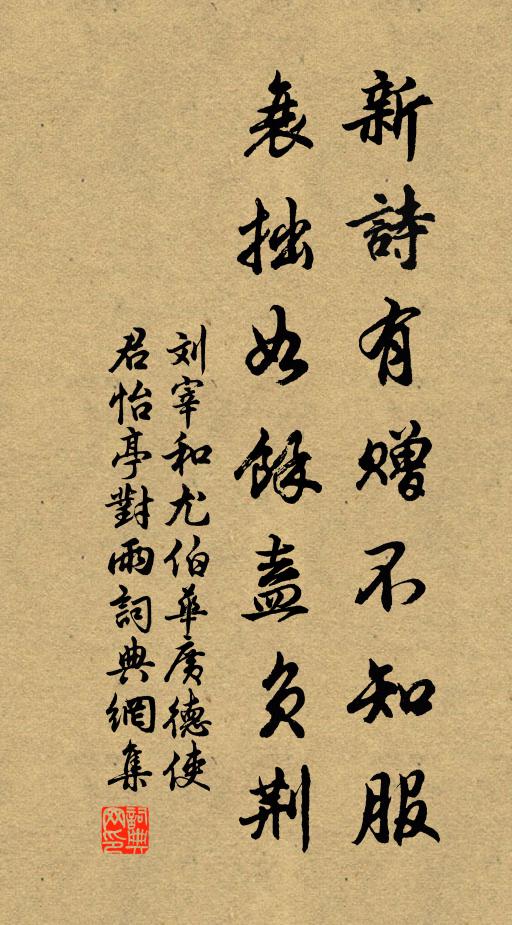 新詩有赠不知服
衰拙如餘盍负荆
刘宰和尤伯華廣德使
君怡亭對雨詞典網集
詞典網印